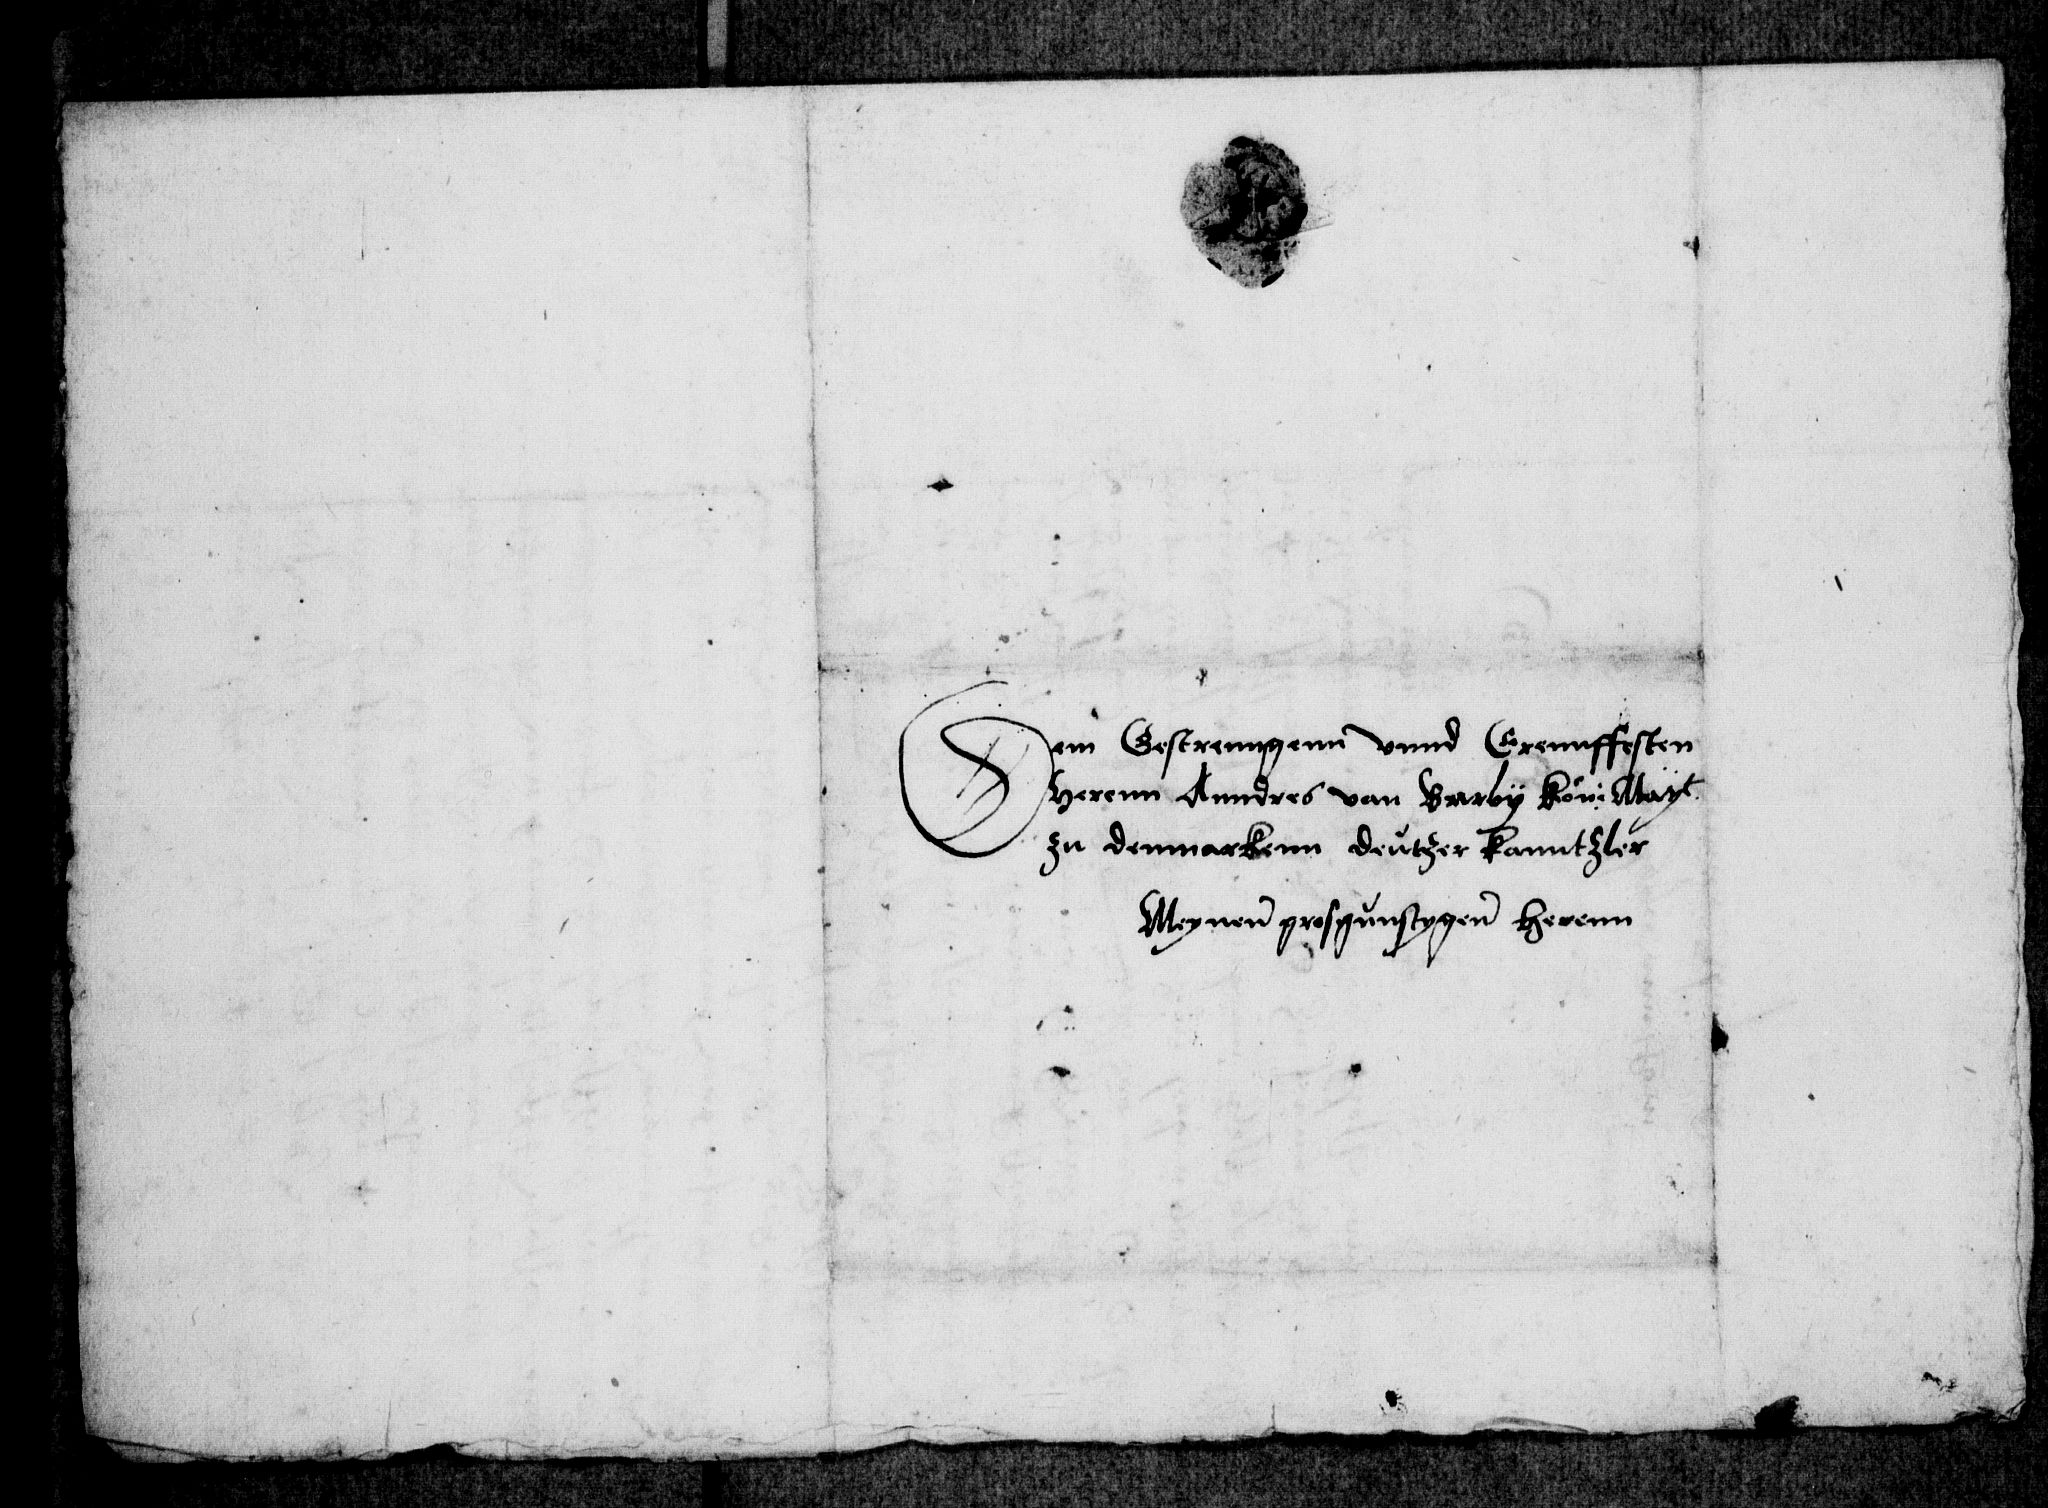 Dem Gestrenngenn vnnd Erennffesten
Herenn Anndres van Barby Kön: Mayt.
zu denmarkenn deutzer Kanntzler
Meynen grosgunstygen Herenn